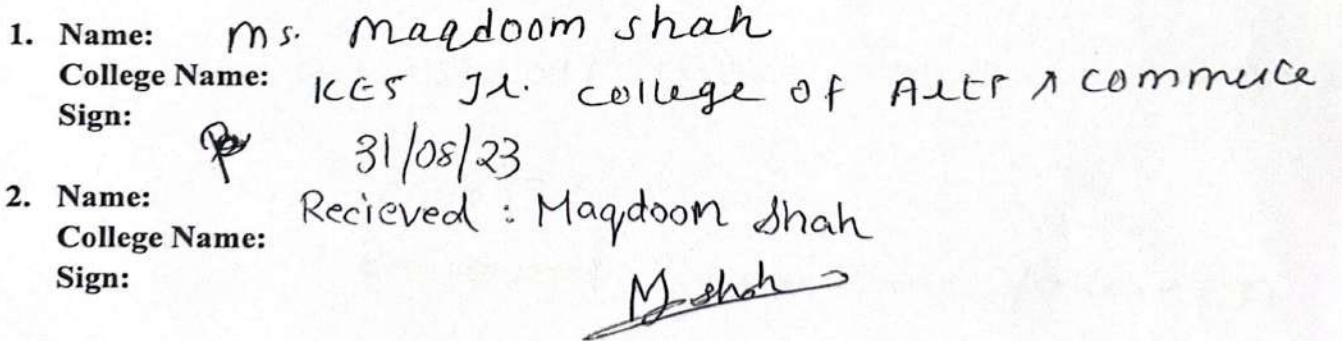 1. Name: Ms. Maqdoom shah
College Name: KES Jr. college of Arts & commerce
Sign:
31/08/23
2. Name: Recieved : Maqdoom Shah
College Name:
Sign: M shah